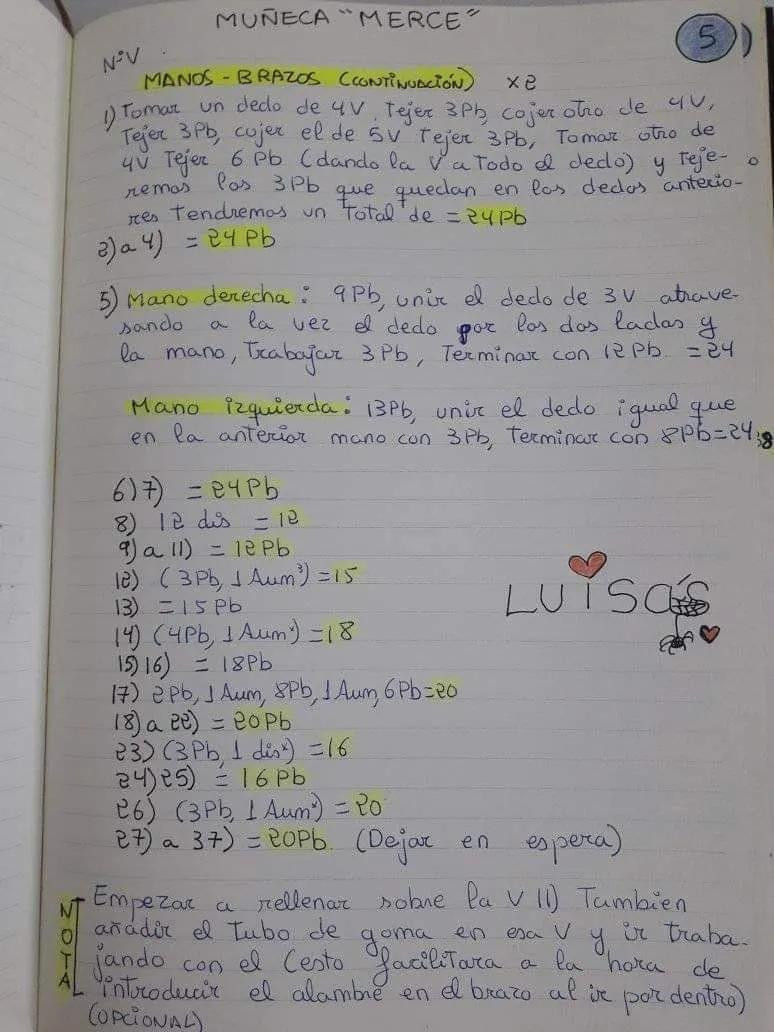 MUÑECA "MERCE"
5
NºV
MANOS-BRAZOS (CONTINUACIÓN) x2
1) Tomar un dedo de 4V, Tejer 3Pb, cojer otro de 4V,
Tejer 3Pb, cojer el de 5V Tejer 3Pb, Tomar otro de
4V Tejer 6 Pb (dando la V a Todo el dedo) y Teje-
remos los 3Pb que quedan en los dedos anterio-
res tendremos un total de = 24Pb
2) a 4) = 24Pb
5) Mano derecha: 9Pb, unir el dedo de 3V atrave-
sando a la vez el dedo por los dos lados y
la mano, Trabajar 3Pb, Terminar con 12Pb = 24
Mano izquierda: 13Pb, unir el dedo igual que
en la anterior mano con 3Pb, Terminar con 8Pb=24
6)7) = 24Pb
8) 12 dis = 12
9) a 11) = 12Pb
12) (3Pb, 1 Aum³) = 15
13) = 15Pb
14) (4Pb, 1 Aum³) = 18
15)16) = 18Pb
17) 2Pb, 1 Aum, 8Pb, 1 Aum, 6Pb=20
18) a 22) = 20Pb
23) (3Pb, 1 dis⁴) = 16
24)25) = 16Pb
26) (3Pb, 1 Aum⁴) = 20
27) a 37) = 20Pb (Dejar en espera)
LUISA'S
NOTA
Empezar a rellenar sobre la V 11) Tambien
añadir el Tubo de goma en esa V y ir traba-
jando con el (esto facilitara a la hora de
introducir el alambre en el brazo al ir por dentro)
(OPCIONAL)